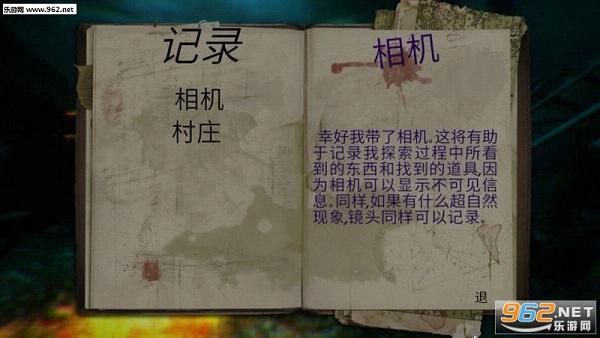 乐游网
www.962.net
记录
相机
村庄
相机
幸好我带了相机。这将有助
于记录我探索过程中所看
到的东西和找到的道具,因
为相机可以显示不可见信
息。同样,如果有什么超自然
现象,镜头同样可以记录。
退
962.NET
乐游网